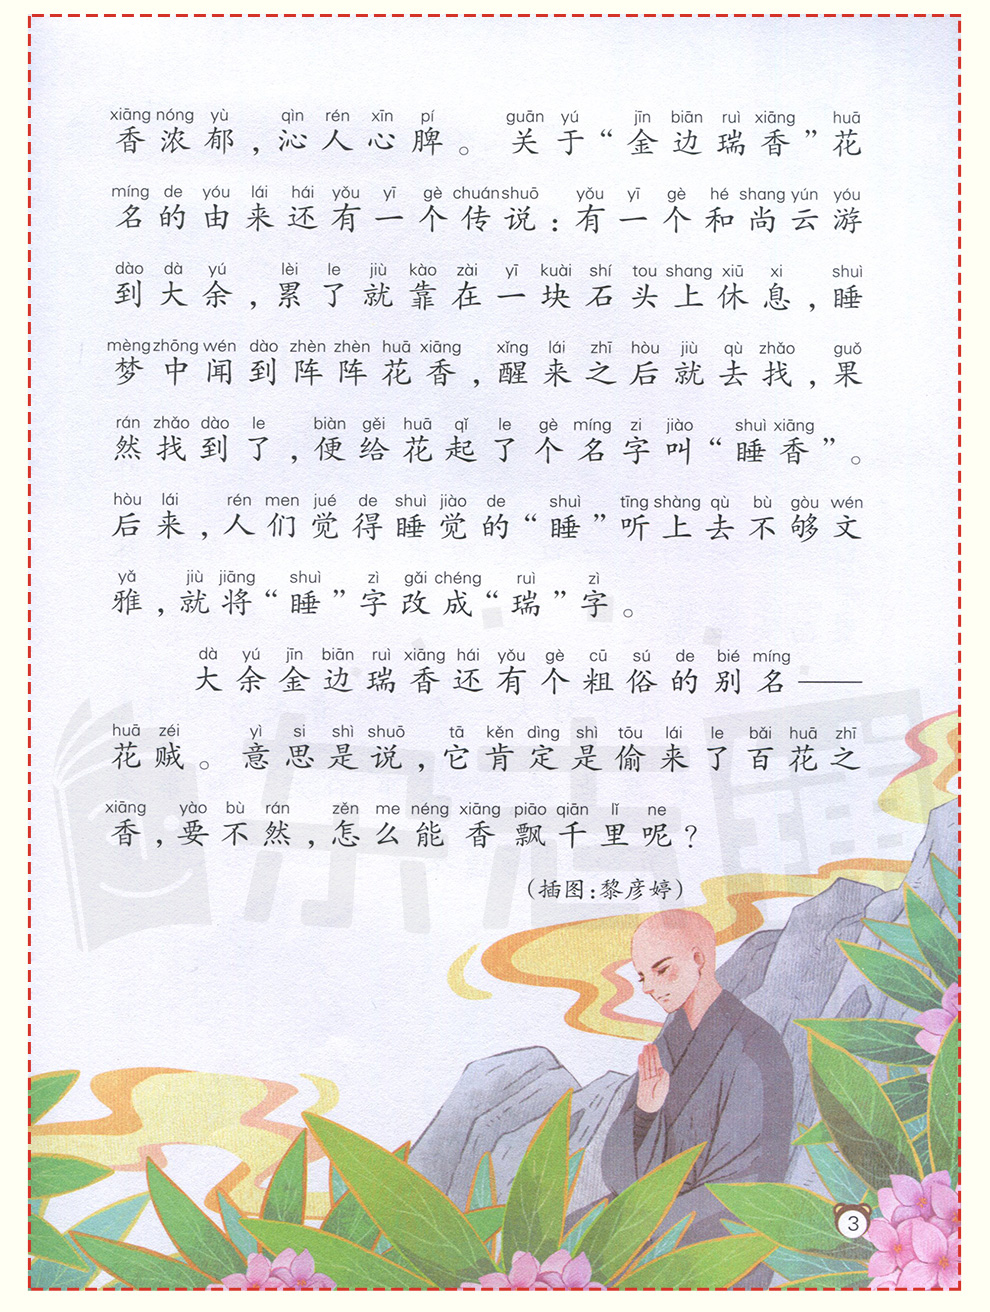 xiāng nóng yù qìn rén xīn pí guān yú jīn biān ruì xiāng huā
香浓郁，沁人心脾。关于“金边瑞香”花
míng de yóu lái hái yǒu yī gè chuán shuō yǒu yī gè hé shang yún yóu
名的由来还有一个传说：有一个和尚云游
dào dà yú lèi le jiù kào zài yī kuài shí tou shang xiū xi shuì
到大余，累了就靠在一块石头上休息，睡
mèng zhōng wén dào zhèn zhèn huā xiāng xǐng lái zhī hòu jiù qù zhǎo guǒ
梦中闻到阵阵花香，醒来之后就去找，果
rán zhǎo dào le biàn gěi huā qǐ le gè míng zi jiào shuì xiāng
然找到了，便给花起了个名字叫“睡香”。
hòu lái rén men jué de shuì jiào de shuì tīng shàng qù bù gòu wén
后来，人们觉得睡觉的“睡”听上去不够文
yǎ jiù jiāng shuì zì gǎi chéng ruì zì
雅，就将“睡”字改成“瑞”字。
dà yú jīn biān ruì xiāng hái yǒu gè cū sú de bié míng
大余金边瑞香还有个粗俗的别名——
huā zéi yì si shì shuō tā kěn dìng shì tōu lái le bǎi huā zhī
花贼。意思是说，它肯定是偷来了百花之
xiāng yào bù rán zěn me néng xiāng piāo qiān lǐ ne
香，要不然，怎么能香飘千里呢？
（插图：黎彦婷）
杂志铺
3